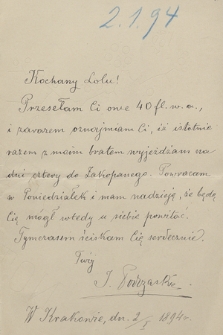 2.1.94
Kochany Lolu!
Przesełam Ci owe 40 fl. w. a.,
i zarazem oznajmiam Ci, iż istotnie
razem z moim bratem wyjeżdżam na
dni cztery do Zakopanego. Powracam
w Poniedziałek i mam nadzieję, że będę
Cię mógł wtedy u siebie powitać.
Tymczasem ściskam Cię serdecznie.
Twój
J.
W Krakowie, dn. 2/I 1894 r.